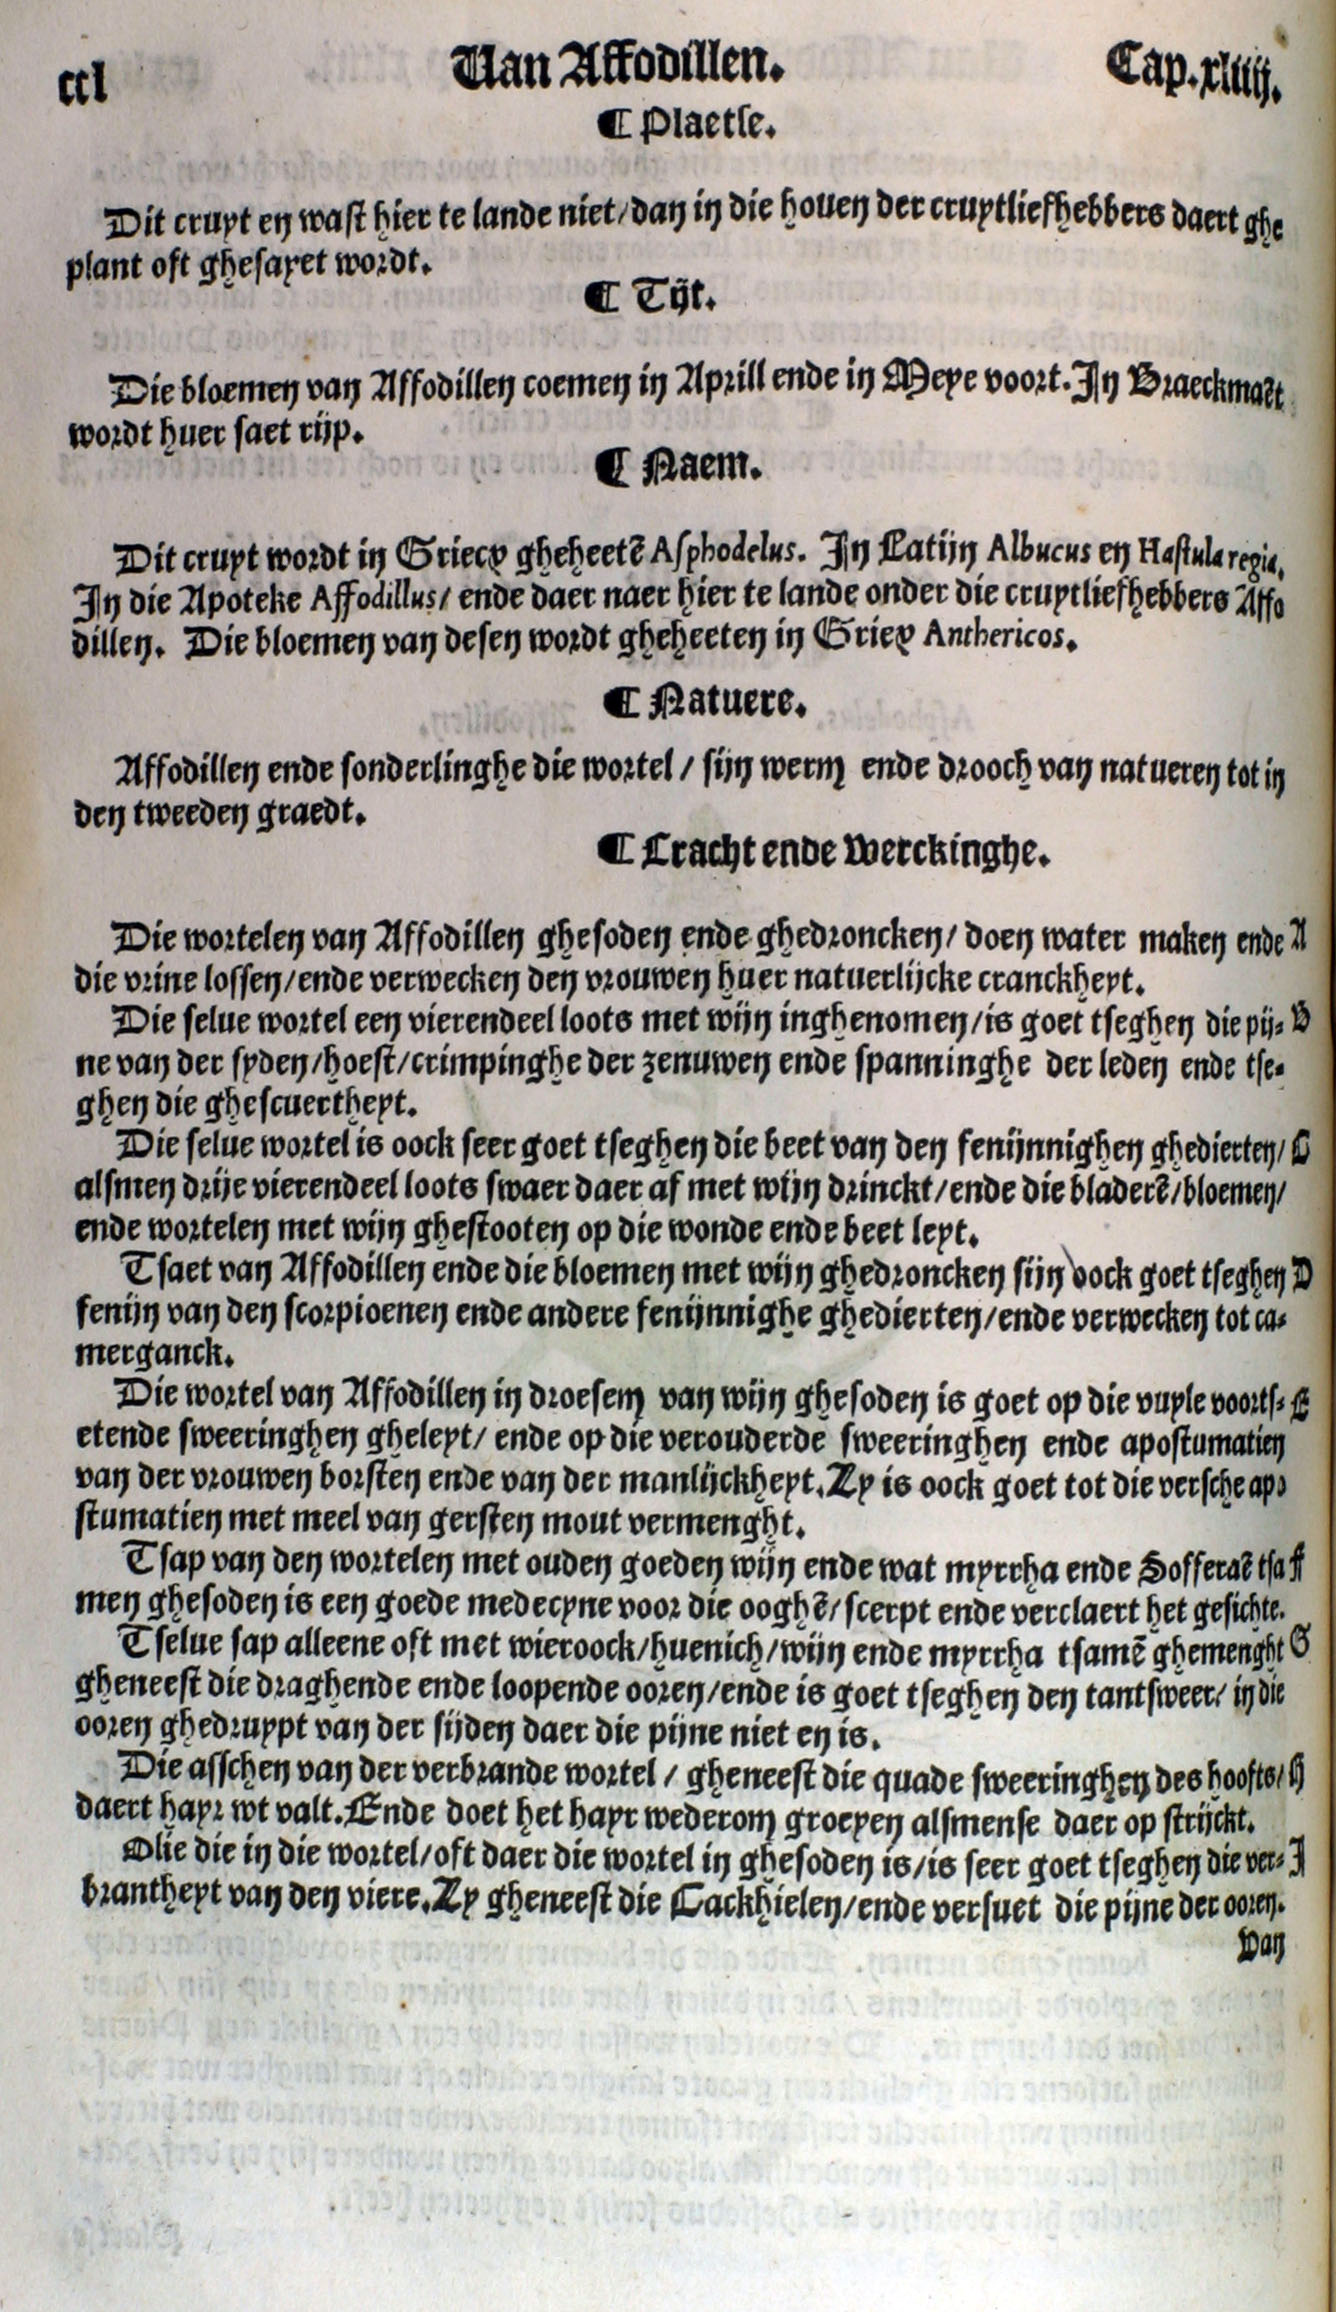 ccl Van Affodillen. Cap. xliiij.
¶ Plaetse.
Dit cruyt en wast hier te lande niet/dan in die houen der cruytliefhebbers daert ghe
plant oft ghesayet wordt.
¶ Tijt.
Die bloemen van Affodillen coemen in Aprill ende in Meye voort. In Braeckmaēt
wordt huer saet rijp.
¶ Naem.
Dit cruyt wordt in Griecx gheheetē Asphodelus. In Latijn Albucus en Hastula regia.
In die Apoteke Affodillus/ ende daer naer hier te lande onder die cruytliefhebbers Affo
dillen. Die bloemen van desen wordt gheheeten in Griex Anthericos.
¶ Natuere.
Affodillen ende sonderlinghe die wortel / sijn werm ende drooch van natueren tot in
den tweeden graedt.
¶ Cracht ende Werckinghe.
Die wortelen van Affodillen ghesoden ende ghedroncken/ doen water maken ende A
die vrine lossen/ende verwecken den vrouwen huer natuerlijcke cranckheyt.
Die selue wortel een vierendeel loots met wijn inghenomen/is goet tseghen die pij- B
ne van der syden/hoest/crimpinghe der zenuwen ende spanninghe der leden ende tse-
ghen die ghescuertheyt.
Die selue wortel is oock seer goet tseghen die beet van den fenijnnighen ghedierten/ C
alsmen drije vierendeel loots swaer daer af met wijn drinckt/ende die bladerē/bloemen/
ende wortelen met wijn ghestooten op die wonde ende beet leyt.
Tsaet van Affodillen ende die bloemen met wijn ghedroncken sijn oock goet tseghen D
fenijn van den scorpioenen ende andere fenijnnighe ghedierten/ende verwecken tot ca-
merganck.
Die wortel van Affodillen in droesem van wijn ghesoden is goet op die vuyle voorts- E
etende sweeringhen gheleyt/ ende op die verouderde sweeringhen ende apostumatien
van der vrouwen borsten ende van der manlijckheyt. Zy is oock goet tot die versche apo
stumatien met meel van gersten mout vermenght.
Tsap van den wortelen met ouden goeden wijn ende wat myrrha ende Sofferaē tsa F
men ghesoden is een goede medecyne voor die ooghē/scerpt ende verclaert het gesichte.
Tselue sap alleene oft met wieroock/huenich/wijn ende myrrha tsamē ghemenght G
gheneest die draghende ende loopende ooren/ende is goet tseghen den tantsweer/ in die
ooren ghedruypt van der sijden daer die pijne niet en is.
Die asschen van der verbrande wortel / gheneest die quade sweeringhen des hoofts/ H
daert hayr wt valt. Ende doet het hayr wederom groeyen alsmense daer op strijckt.
Olie die in die wortel/oft daer die wortel in ghesoden is/is seer goet tseghen die ver- I
brantheyt van den viere. Zy gheneest die Cackhielen/ende versuet die pijne der ooren.
Van